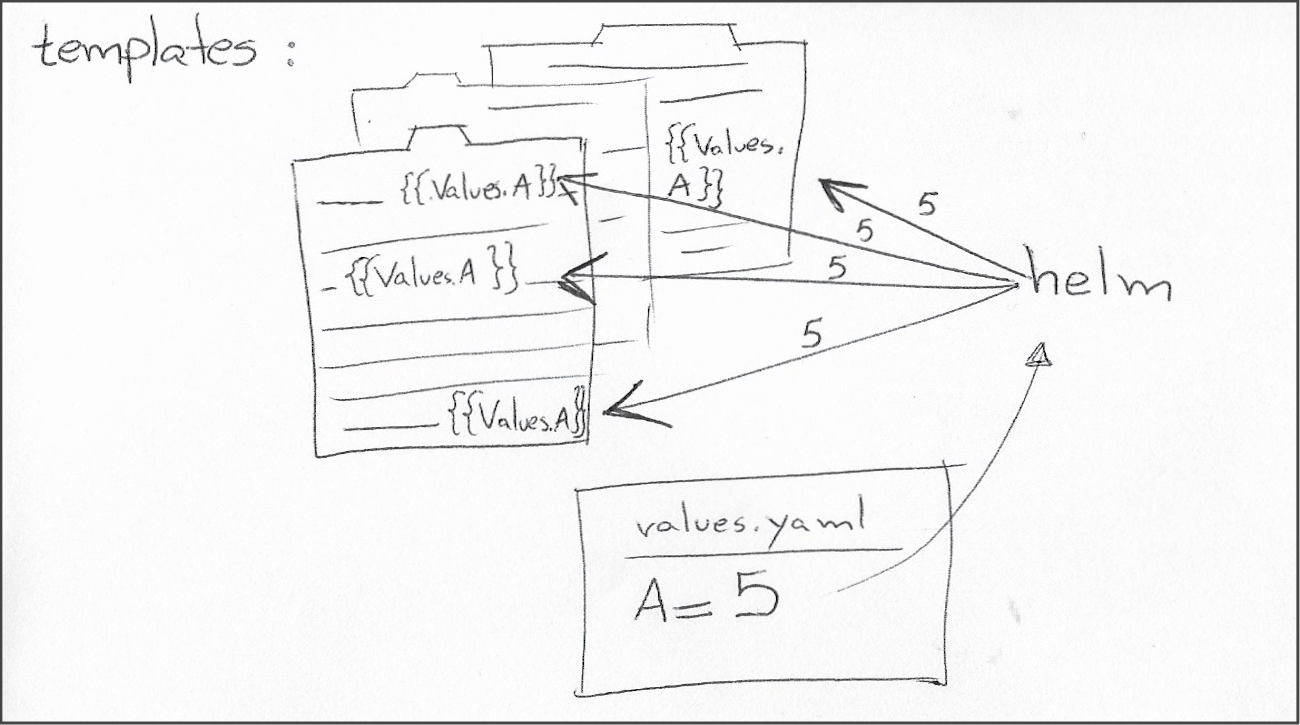 templates :
{{Values.
A}}
{{.Values.A}}
{{Values.A }}
{{Values.A}
5
5
5
5
helm
values.yaml
A= 5